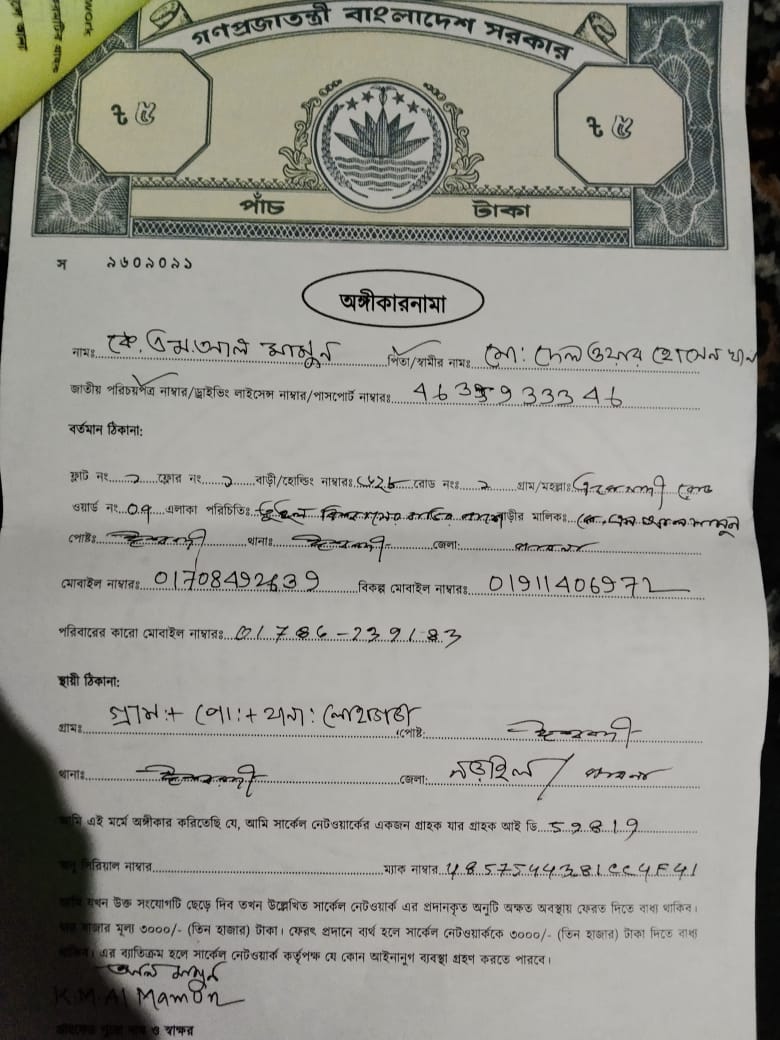 work
গণপ্রজাতন্ত্রী বাংলাদেশ সরকার
৳ ৫ ৳ ৫
পাঁচ টাকা
স ৯৬০৯০৯১
অঙ্গীকারনামা
নামঃ কে. এম. আল মামুন পিতা/স্বামীর নামঃ মো: দেলওয়ার হোসেন খান
জাতীয় পরিচয়পত্র নাম্বার/ড্রাইভিং লাইসেন্স নাম্বার/পাসপোর্ট নাম্বারঃ
বর্তমান ঠিকানা:
ফ্লাট নং ২ ফ্লোর নং ১ বাড়ী/হোল্ডিং নাম্বারঃ রোড নংঃ ২ গ্রাম/মহল্লাঃ রোড
ওয়ার্ড নং 09 এলাকা পরিচিতিঃ বাড়ীর মালিকঃ কে. এম. আল মামুন
পোষ্টঃ ঈশ্বরদী থানাঃ ঈশ্বরদী জেলা: পাবনা
মোবাইল নাম্বারঃ 01708492639 বিকল্প মোবাইল নাম্বারঃ 01911406972
পরিবারের কারো মোবাইল নাম্বারঃ 01786-239183
স্থায়ী ঠিকানা:
গ্রামঃ গ্রাম:+ পো:+ থানা: লোহাগড়া পোষ্ট: ঈশ্বরদী
থানাঃ ঈশ্বরদী জেলা: নড়াইল/ পাবনা
আমি এই মর্মে অঙ্গীকার করিতেছি যে, আমি সার্কেল নেটওয়ার্কের একজন গ্রাহক যার গ্রাহক আই ডি 59819
অনু সিরিয়াল নাম্বার ম্যাক নাম্বার 48575443B1CC4F41
আমি যখন উক্ত সংযোগটি ছেড়ে দিব তখন উল্লেখিত সার্কেল নেটওয়ার্ক এর প্রদানকৃত অনুটি অক্ষত অবস্থায় ফেরত দিতে বাধ্য থাকিব।
যার বাজার মূল্য ৩০০০/- (তিন হাজার) টাকা। ফেরৎ প্রদানে ব্যর্থ হলে সার্কেল নেটওয়ার্ককে ৩০০০/- (তিন হাজার) টাকা দিতে বাধ্য
থাকিব। এর ব্যতিক্রম হলে সার্কেল নেটওয়ার্ক কর্তৃপক্ষ যে কোন আইনানুগ ব্যবস্থা গ্রহণ করতে পারবে।
আল মামুন
K.M.Al Mamun
গ্রাহকের পুরো নাম ও স্বাক্ষর